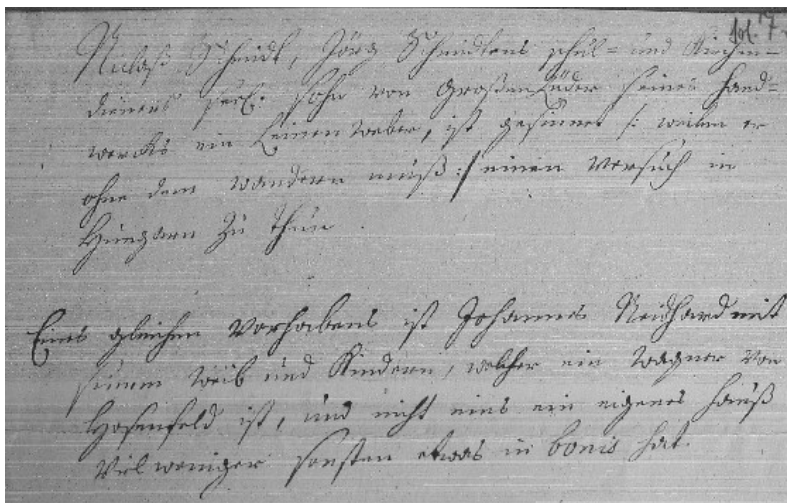 fol. 7.
Niclaß Schmidt, Jörg Schmidtens schul- und Kirchen-
dieners seel. sohn von Großenlüder seines Hand-
wercks ein Leinen weber, ist gesinnet /: weilen er
ohne dem wandern muß :/ einen Versuch in
Hungarn zu thun
Eines gleichen Vorhabens ist Johannes Neidhard mit
seinem Weib und Kindern, welcher ein Wagner von
Hosenfeld ist, und nicht eins ein eigenes Hauß
viel weniger sonsten etwas in bonis hat.